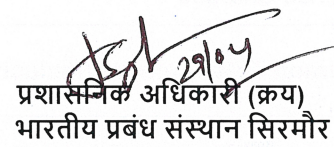 29/04
प्रशासनिक अधिकारी (क्रय)
भारतीय प्रबंध संस्थान सिरमौर